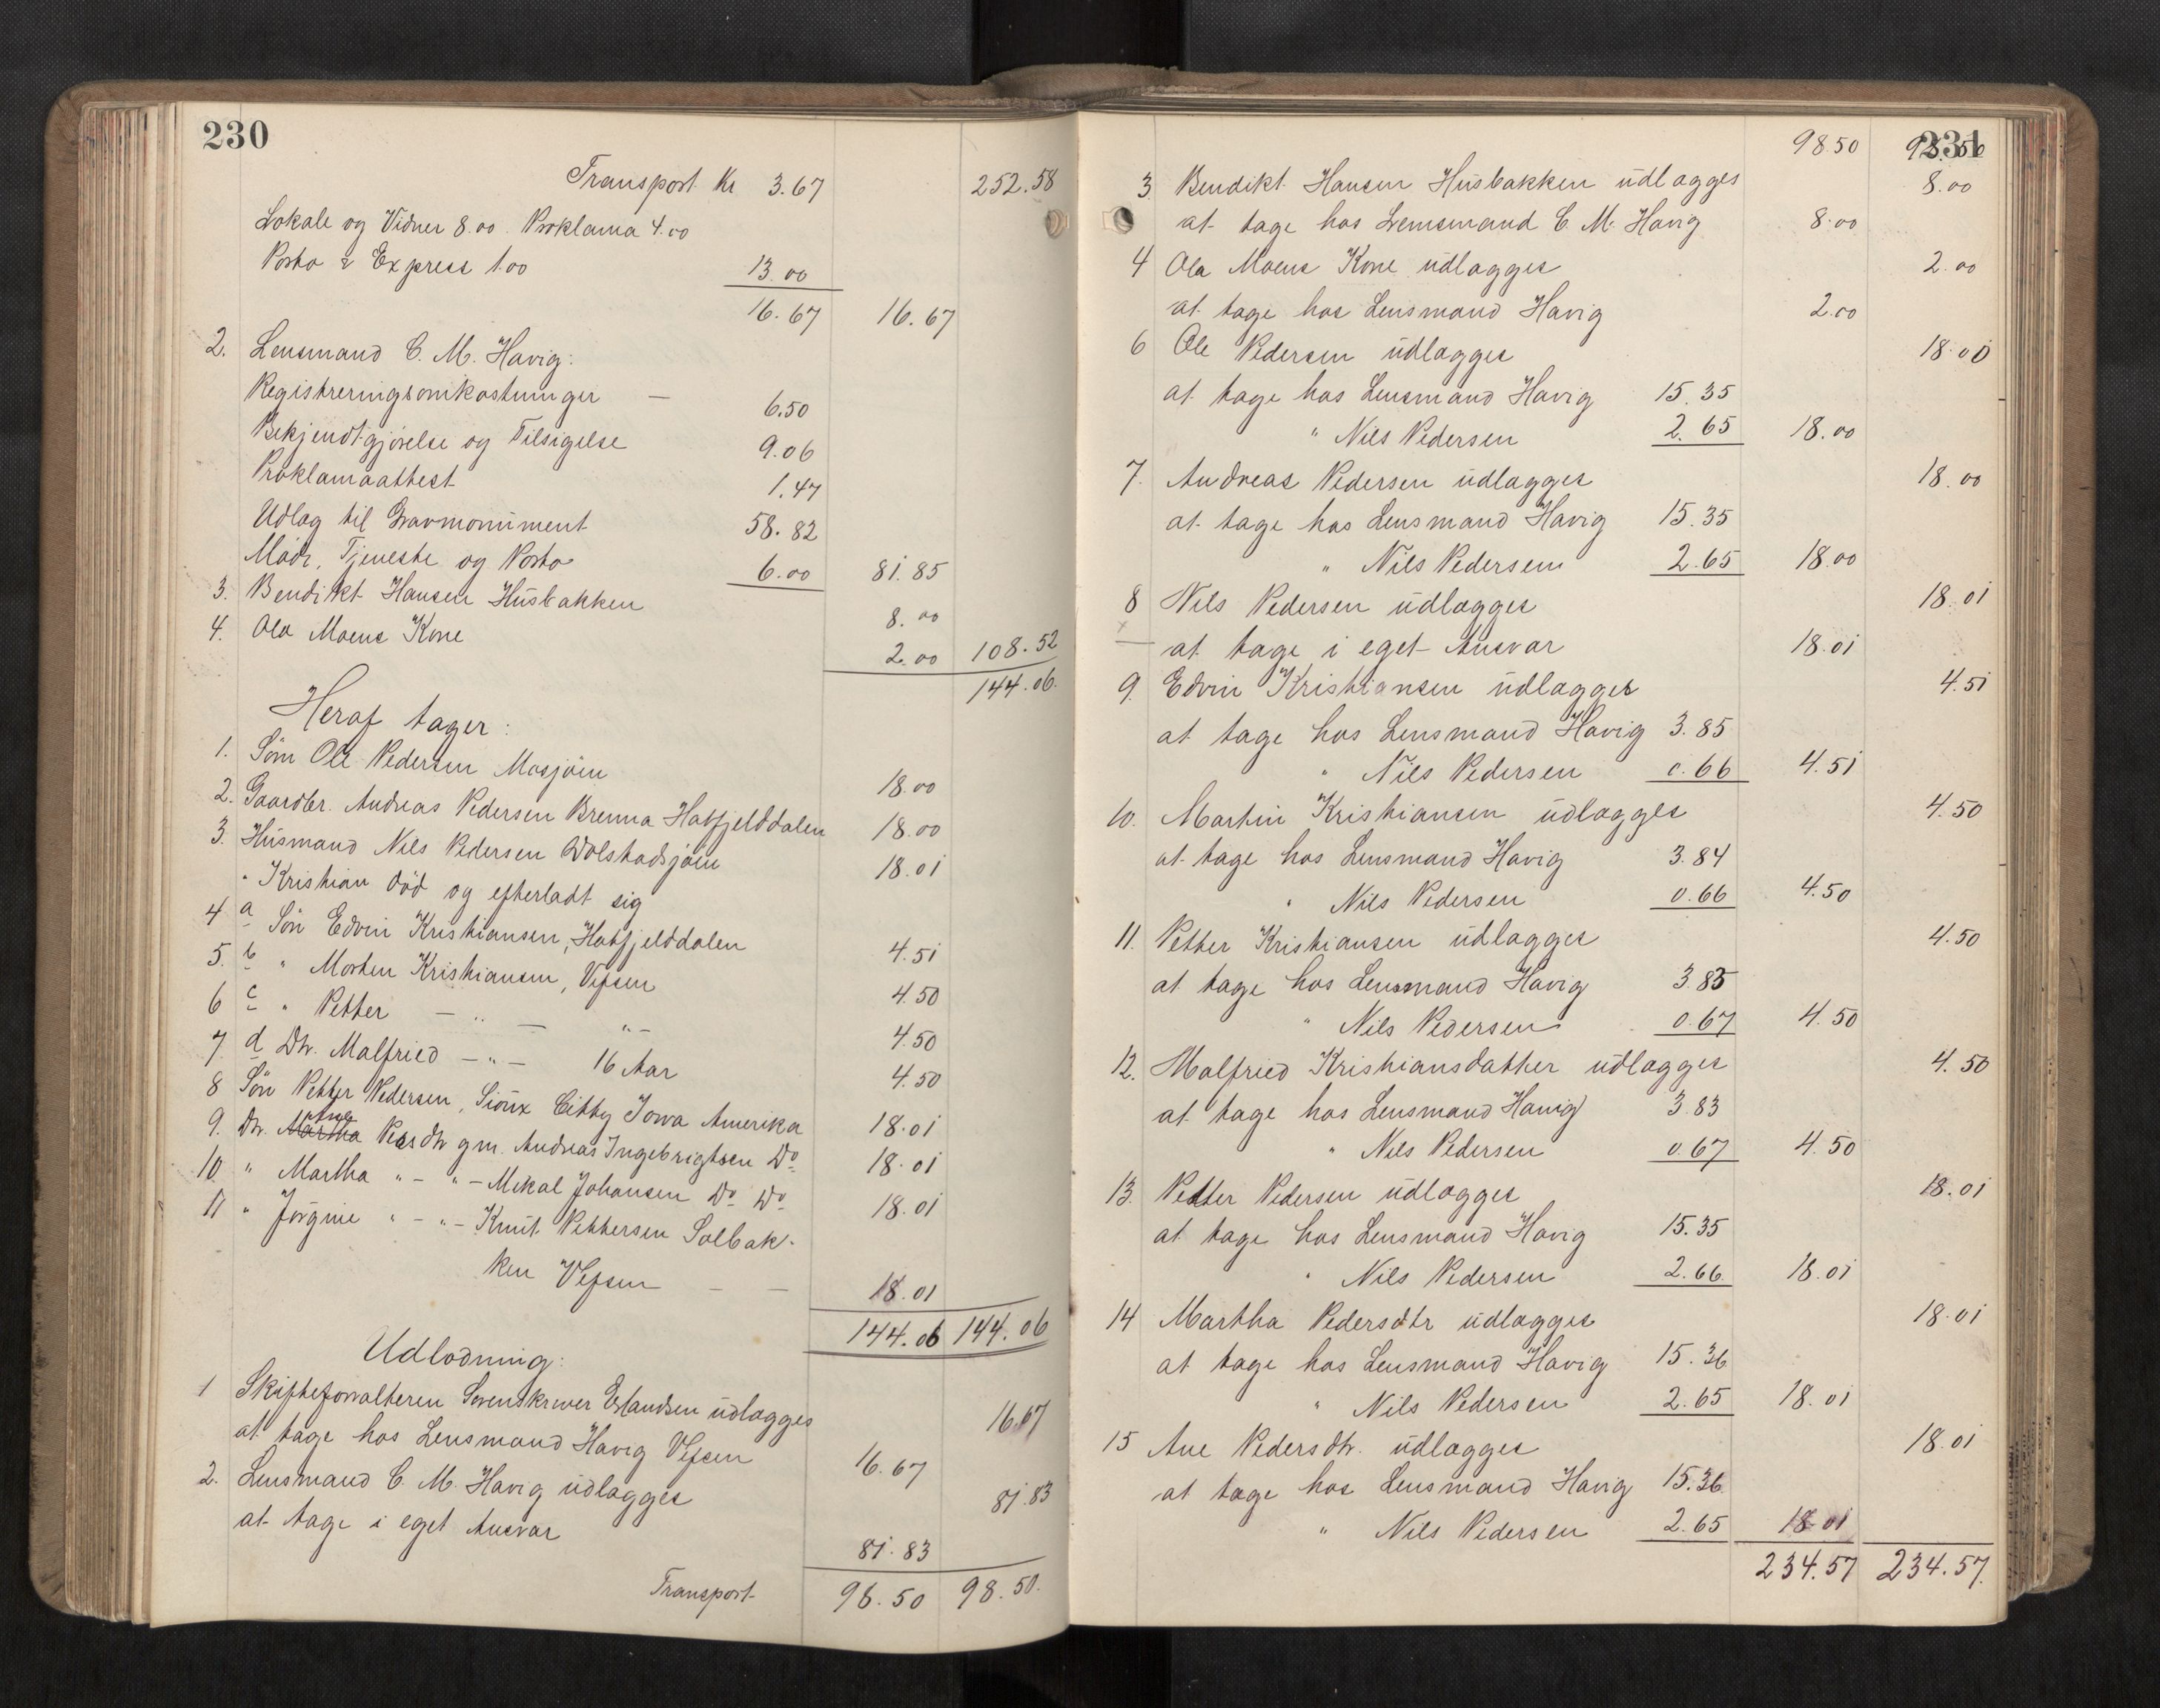 230
Transport Kr 3.67 252.58
Lokale og Vidner 8.00 Proklama 4.00
Porto & Express 1.00 13.00
16.67 16.67
2. Lensmand C. M. Havig:
Registreringsomkostninger — 6.50
Bekjendtgjørelse og Tilsigelse 9.06
Proklamaattest 1.47
Udlæg til Gravmonument 58.82
Mødr, Tjeneste og Porto 6.00 81.85
3. Bendikt Hansen Husbakken 8.00
4. Ola Moens Kone 2.00 108.52
144.06.
Heraf tager:
1. Søn Ole Pedersen Mosjøen 18.00
2. Gaardbr. Andreas Pedersen Brenna Hatfjelddalen 18.00
3. Husmand Nils Pedersen Dolstadsjøen 18.01
" Kristian død og efterladt sig
4 a Søn Edvin Kristiansen, Hatfjelddalen 4.51
5. b " Morten Kristiansen, Vefsen 4.50
6 c " Petter — " — " — 4.50
7. d Dtr. Malfried — " — 16 Aar 4.50
8 Søn Petter Pedersen, Sioux Citty Iowa Amerika 18.01
9. Dtr. Martha Ane Pedsdtr gm. Andreas Ingebrigtsen Do 18.01
10 " Martha " — " — Mikal Johansen Do Do 18.01
11 " Jørgine " — " — Knut Pettersen Solbak-
ken Vefsen — — 18.01
144.06 144.06
Udlodning:
1 Skifteforvalteren Sorenskriver Erlandsen udlægges 16.67
at tage hos Lensmand Havig Vefsen 16.67
2. Lensmand C. M. Havig udlægges 81.83
at tage i eget Ansvar 81.83
Transport 98.50 98.50.
231
98.50 98.50
3. Bendikt Hansen Husbakken udlægges 8.00
at tage hos Lensmand C. M. Havig 8.00
4 Ola Moens Kone udlægges 2.00
at tage hos Lensmand Havig 2.00
6 Ole Pedersen udlægges 18.00
at tage hos Lensmand Havig 15.35
" Nils Pedersen 2.65 18.00
7. Andreas Pedersen udlægges 18.00
at tage hos Lensmand Havig 15.35
" Nils Pedersen 2.65 18.00
8 Nils Pedersen udlægges 18.01
at tage i eget Ansvar 18.01
9. Edvin Kristiansen udlægges 4.51
at tage hos Lensmand Havig 3.85
" Nils Pedersen 0.66 4.51
10. Martin Kristiansen udlægges 4.50
at tage hos Lensmand Havig 3.84
" Nils Pedersen 0.66 4.50
11. Petter Kristiansen udlægges 4.50
at tage hos Lensmand Havig 3.83
" Nils Pedersen 0.67 4.50
12. Malfried Kristiansdatter udlægges 4.50
at tage hos Lensmand Havig 3.83
" Nils Pedersen 0.67 4.50
13. Petter Pedersen udlægges 18.01
at tage hos Lensmand Havig 15.35
" Nils Pedersen 2.66 18.01
14 Martha Pedersdtr udlægges 18.01
at tage hos Lensmand Havig 15.36
" Nils Pedersen 2.65 18.01
15 Ane Pedersdtr. udlægges 18.01
at tage hos Lensmand Havig 15.36
" Nils Pedersen 2.65 18.01
234.57 234.57.